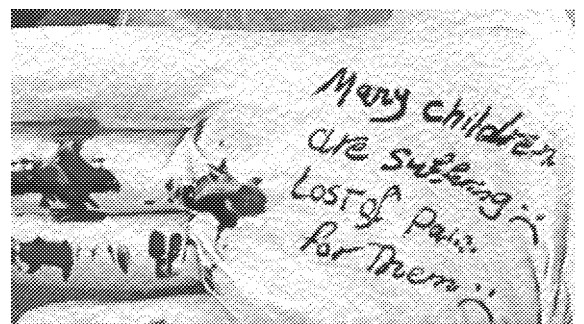 Many children
are suffering :(
Lost of Pain
for Them :(